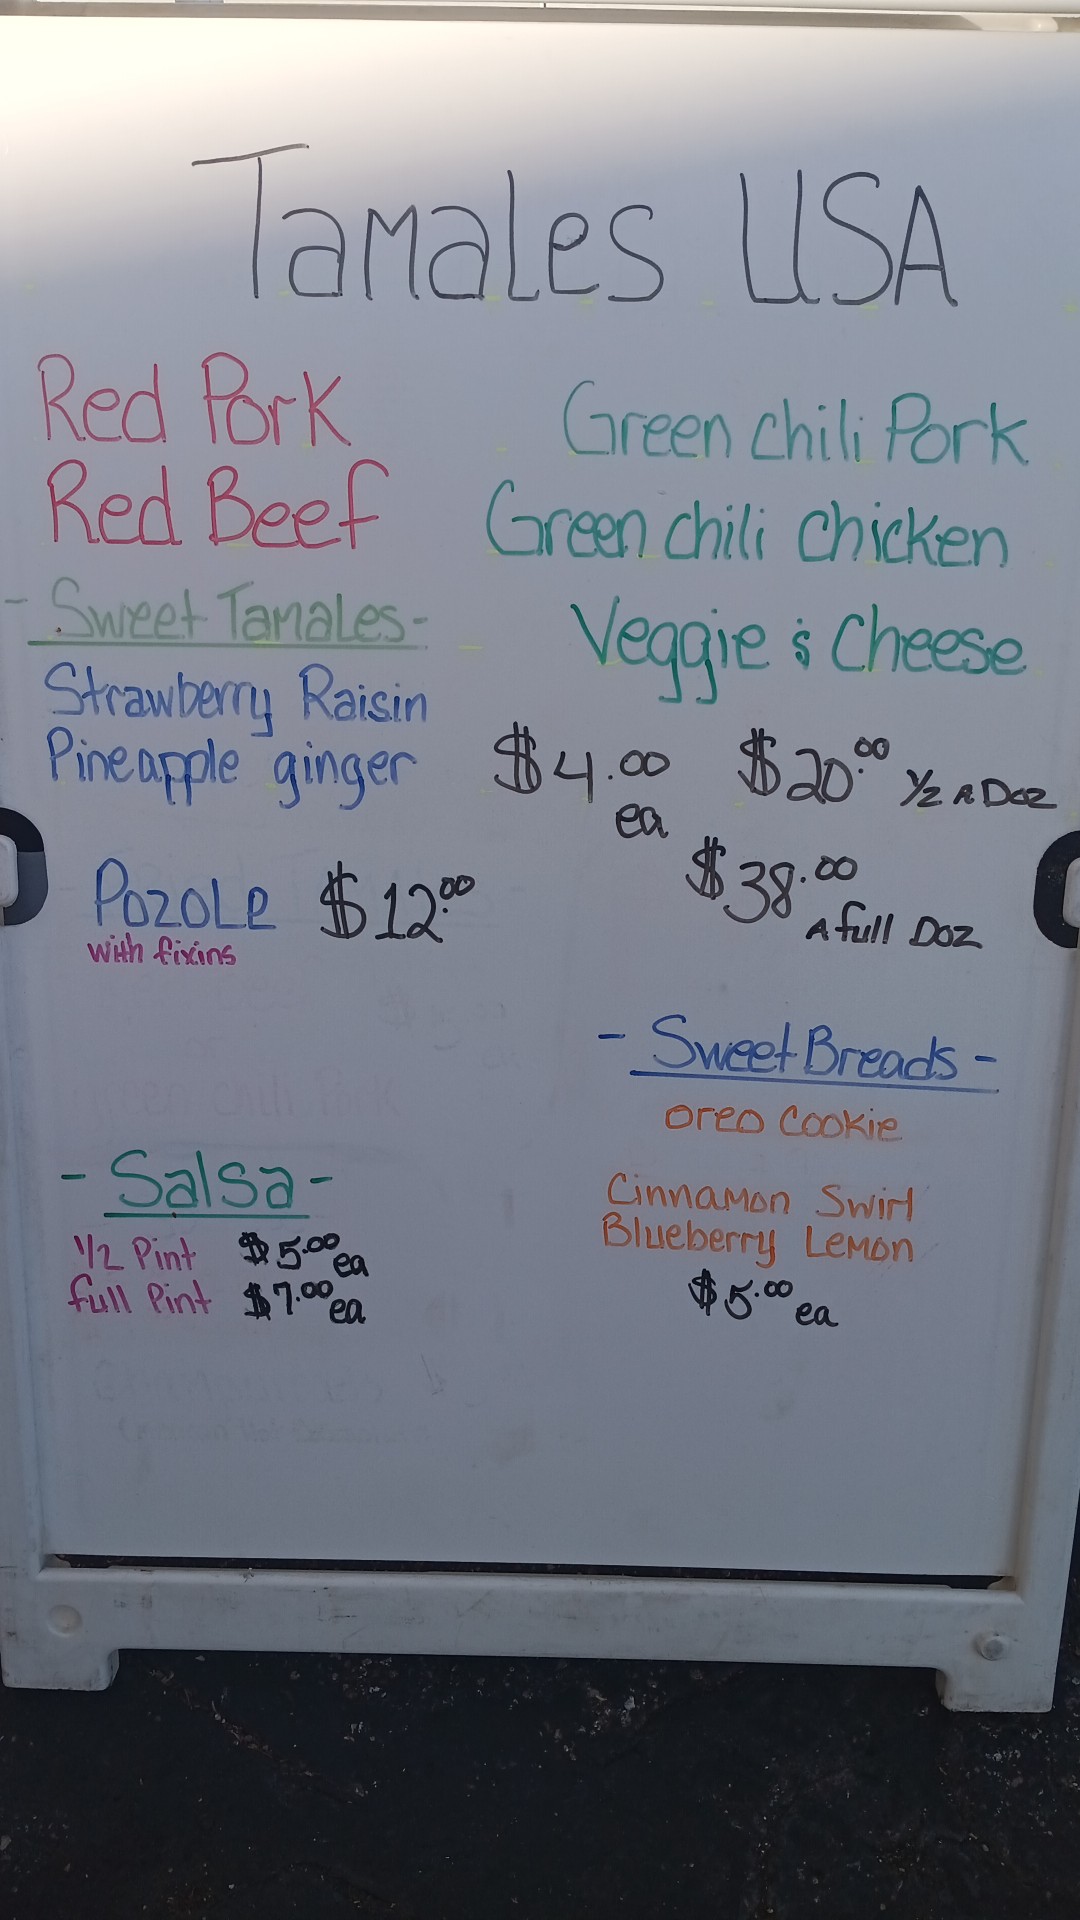 Tamales USA
Red Pork
Red Beef
Green chili Pork
Green chili chicken
Veggie & Cheese
- Sweet Tamales -
Strawberry Raisin
Pineapple ginger
$4.00 ea
$20.00 1/2 A Doz
$38.00 A full Doz
Pozole $12.00
with fixins
- Sweet Breads -
Oreo Cookie
Cinnamon Swirl
Blueberry Lemon
$5.00 ea
- Salsa -
1/2 Pint $5.00 ea
full Pint $7.00 ea